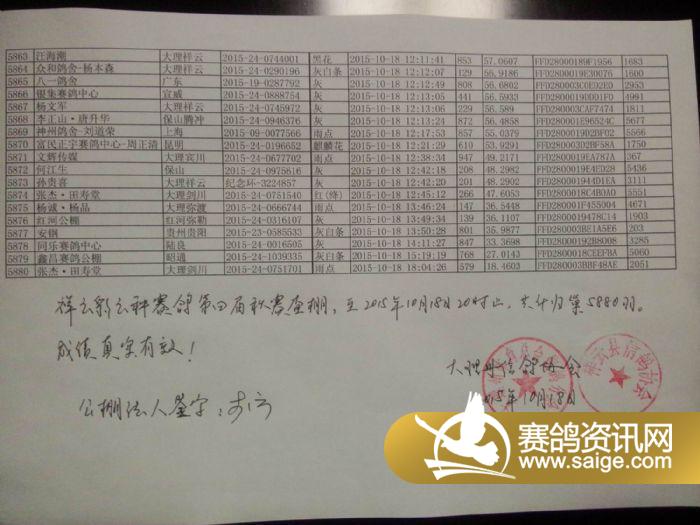 5863 汪海潮 大理祥云 2015-24-0744001 黑花 2015-10-18 12:11:41 853 57.0607 FFD28000189F1956 1683
5864 众和鸽舍-杨本森 大理祥云 2015-24-0290196 灰白条 2015-10-18 12:12:07 129 56.9186 FFD2800019E30076 1600
5865 八一鸽舍 广东 2015-19-0287792 灰 2015-10-18 12:12:49 808 56.6802 2953
5866 银集赛鸽中心 宣威 2015-24-0888754 灰 2015-10-18 12:13:05 441 56.5933 4991
5867 杨文军 大理祥云 2015-24-0745972 灰 2015-10-18 12:13:06 229 56.589 FFD280003CAF7474 1811
5868 李正山·唐升华 保山腾冲 2015-24-0946376 灰 2015-10-18 12:13:24 872 56.4858 FFD280001E96524C 5677
5869 神州鸽舍-刘道荣 上海 2015-09-0077566 雨点 2015-10-18 12:17:53 855 55.0379 FFD2800019D2BF02 5566
5870 富民正宇赛鸽中心-周正清 昆明 2015-24-0196652 麒麟花 2015-10-18 12:21:29 610 53.9291 FFD280003D2BF58A 1750
5871 文辉传媒 大理宾川 2015-24-0677702 雨点 2015-10-18 12:38:34 947 49.2171 FFD2800019EA787A 367
5872 何江生 保山 2015-24-0975616 灰 2015-10-18 12:42:18 208 48.2982 FFD2800019E4ED28 5436
5873 孙贵喜 大理祥云 纪念环-3224857 灰 2015-10-18 12:42:20 201 48.2902 FFD28000194D1EA 3111
5874 张杰·田寿堂 大理剑川 2015-24-0751540 红(绛) 2015-10-18 12:45:12 266 47.6053 FFD2800018C4B0A0 5551
5875 杨诚·杨品 大理弥渡 2015-24-0666744 雨点 2015-10-18 13:46:24 147 36.5448 FFD280001F455004 4671
5876 红河公棚 红河弥勒 2015-24-0316107 灰 2015-10-18 13:49:34 139 36.1107 FFD2800019478C14 1903
5877 安钢 贵州贵阳 2015-23-0585533 灰白条 2015-10-18 13:50:28 801 35.9877 FFD280003BE1A5E6 203
5878 同乐赛鸽中心 陆良 2015-24-0016505 灰 2015-10-18 14:11:27 847 33.3698 FFD28000192B8008 3285
5879 鑫昌赛鸽公棚 昭通 2015-24-1039335 灰白条 2015-10-18 15:19:19 768 27.0143 FFD2800018CEEFBA 5060
5880 张杰·田寿堂 大理剑川 2015-24-0751701 雨点 2015-10-18 18:04:26 579 18.4603 FFD280003BBF48AE 2051
祥云彩云轩赛鸽第四届秋赛查棚，至2015年10月18日20时止，共计归巢5880羽。
成绩真实有效！
大理州信鸽协会
2015年10月18日
祥云县信鸽协会
公棚法人签字：
赛鸽资讯网
www.saige.com